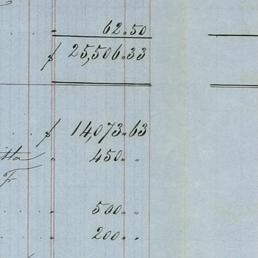 " 62.50
$ 25,506.33
$ 14,073.63
" 450 " "
" 500 " "
" 200 " "